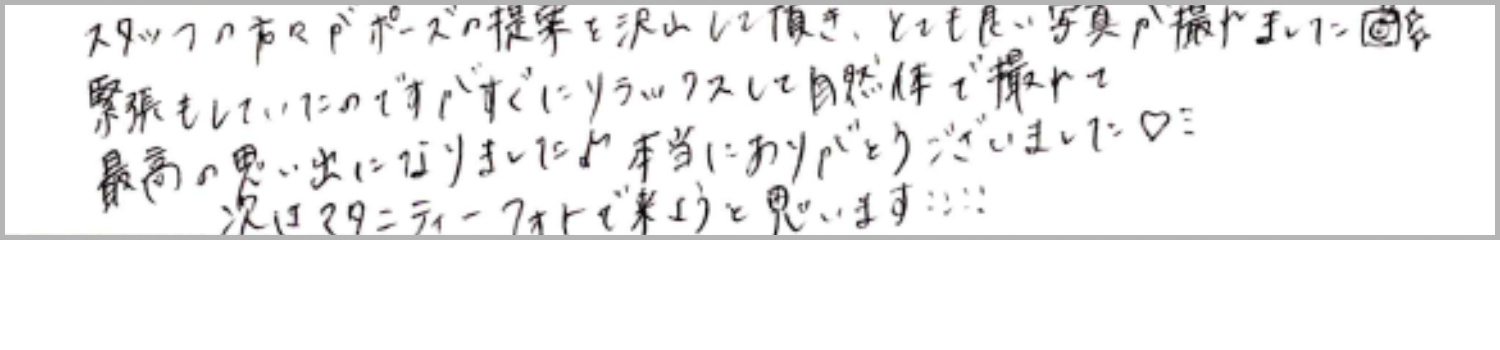 スタッフの方々がポーズの提案を沢山して頂き、とても良い写真が撮れました📷
緊張もしていたのですがすぐにリラックスして自然体で撮れて
最高の思い出になりました♪ 本当にありがとうございました♡
次はマタニティーフォトで来ようと思います